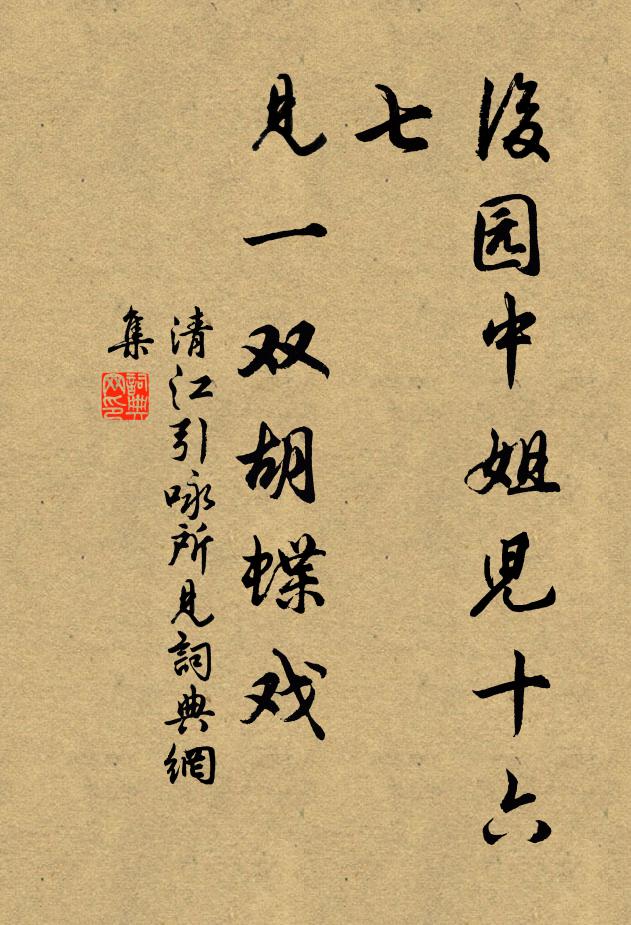 後园中姐児十六
七
見一双胡蝶戏
清江引咏所見詞典網
集
詞典
网印